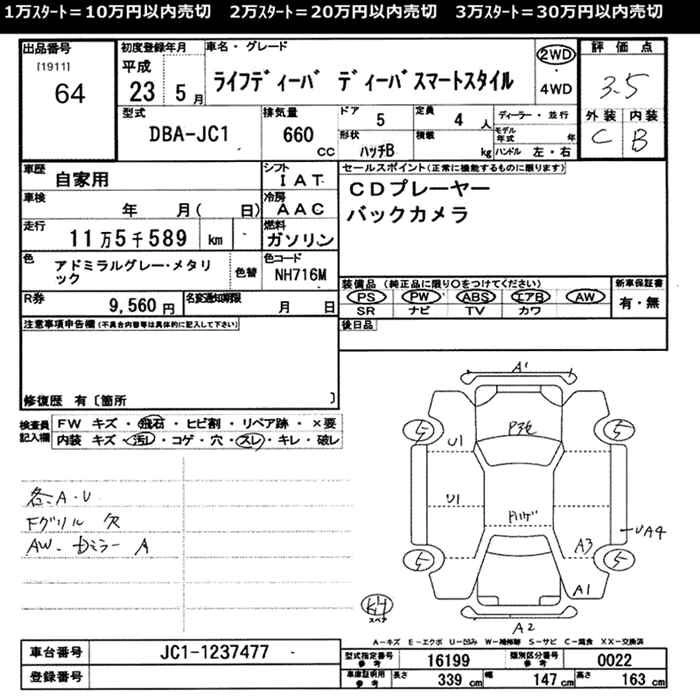 1万ｽﾀｰﾄ＝10万円以内売切　2万ｽﾀｰﾄ＝20万円以内売切　3万ｽﾀｰﾄ＝30万円以内売切
出品番号
[1911]
64
初度登録年月
平成
23 5 月
車名・グレード
ライフディーバ　ディーバスマートスタイル
2WD
・
4WD
評価点
3.5
外装 内装
C B
型式
DBA-JC1
排気量
660 cc
ドア 5
定員 4 人
形状 ハッチB
積載 kg
ディーラー・並行
モデル年式 年
ハンドル 左・右
車歴
自家用
シフト
IAT
車検
年　月(　日)
冷房
AAC
走行
11万5千589 km
燃料
ガソリン
色
アドミラルグレー・メタリ
ック
色替
色コード
NH716M
R券
9,560 円
名変通知期限
月　日
セールスポイント(正常に機能するものに限ります)
CDプレーヤー
バックカメラ
装備品（純正品に限り○をつけてください）
PS PW ABS エアB AW
SR ナビ TV カワ
新車保証書
有・無
後日品
注意事項申告欄(不具合内容等は具体的に記入して下さい)
修復歴 有〔箇所　〕
検査員
記入欄
FW キズ・飛石・ヒビ割・リペア跡・×要
内装 キズ・汚レ・コゲ・穴・スレ・キレ・破レ
各、A・U
Fグリル 欠
AW、ドミラー A
A'
5
5
U1
U1
5
5
UA4
A3
A1
A2
スペア
A－キズ　E－エクボ　U－凹み　W－補修跡　S－サビ　C－腐食　XX－交換済
車台番号
JC1-1237477
登録番号
型式指定番号
参考
16199
類別区分番号
参考
0022
車庫証明用
参考
長さ 339 cm
幅 147 cm
高さ 163 cm